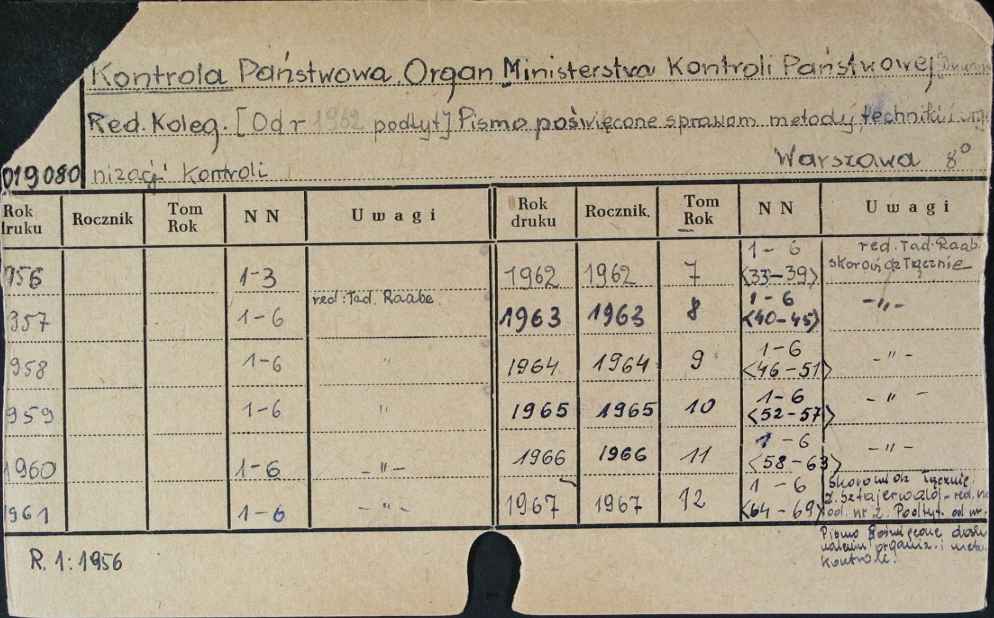 Kontrola Państwowa. Organ Ministerstwa Kontroli Państwowej
Red. Koleg. [Od r 1962 podtyt] Pismo poświęcone sprawom metody, techniki i orga
Warszawa 8°
019080 nizacji Kontroli
Rok druku Rocznik Tom Rok NN Uwagi Rok druku Rocznik. Tom Rok NN Uwagi
956 1-3 1962 1962 7 1-6 <33-39> red. Tad. Raab. skorowidz łącznie
957 1-6 red: Tad. Raabe 1963 1963 8 1-6 <40-45> -„-
958 1-6 " 1964 1964 9 1-6 <46-51> -"-
959 1-6 " 1965 1965 10 1-6 <52-57> -"-
1960 1-6 -"- 1966 1966 11 1-6 <58-63> -"-
1961 1-6 -"- 1967 1967 12 1-6 <64-69> Skorowidz łącznie.
red. na
od. nr 2. Podtyt. od nr.
Pismo poświęcone dosko
naleniu organiz. i meto.
kontroli.
R. 1: 1956